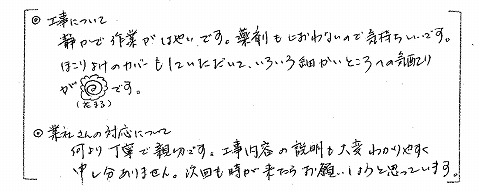 ◎ 工事について
静かで作業がはやいです。薬剤もにおわないので気持ちいいです。
ほこりよけのカバーもしていただいて、いろいろ細かいところへの気配り
が です。
(花まる)
◎ 業社さんの対応について
何より丁寧で親切です。工事内容の説明も大変わかりやすく
申し分ありません。次回も時が来たらお願いしようと思っています。